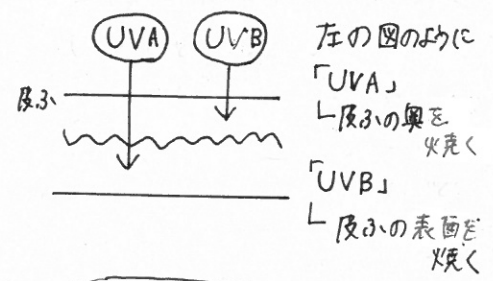 UVA UVB
皮ふ
左の図のように
「UVA」
└皮ふの奥を
焼く
「UVB」
└皮ふの表面を
焼く